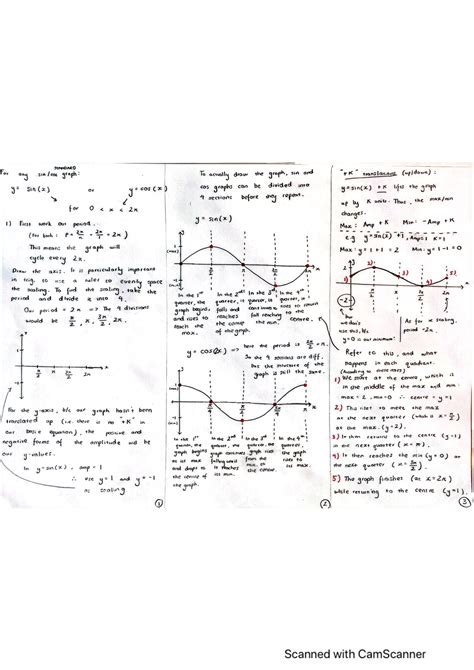 STANDARD
For any sin/cos graph:
y= sin(x) or y=cos(x)
for 0 < x < 2π
1) First work out period.
(for both: P= 2π/n = 2π/1 = 2π)
This means the graph will
cycle every 2π.
Draw the axis. It is particularly important
in trig. so use a ruler to evenly space
the scaling. To find the scaling, take the
period and divide is into 4.
Our period = 2π => The 4 divisions
would be π/2, π, 3π/2, 2π.
π/2 π 3π/2 2π
For the y-axis, b/c our graph hasn't been
translated up (i.e. there is no "+k" in
our basic equation), the positive and
negative forms of the amplitude will be
our y-values.
In y=sin(x), amp = 1
∴ use y=1 and y=-1
as scaling
1
To actually draw the graph, sin and
cos graphs can be divided into
4 sections before they repeat.
y = sin(x)
π/2 π 3π/2 2π x
In the 1st
quarter, the
graph begins
and rises to
reach the
max.
In the 2nd
quarter, it
falls and
reaches
the centre
of the graph.
In the 3rd
quarter, it
cont. to
fall reaching
the
min.
In the 4th
quarter, it
returns
to the
centre.
y = cos(x) => here the period is
So the 4 sections are diff.
but the structure of the
graph is still the same.
π/2 π 3π/2 2π x
In the 1st
quarter, the
graph begins
at its max
and drops to
its centre
of the graph.
In the 2nd
quarter, the
graph
continues
falling until
it reaches
the min.
In the 3rd
quarter, the
graph rises
from the
min to
the centre.
In the 4th
quarter, the
graph
rises to
its
max.
2
"+K" translations (up/down):
y=sin(x) +K lifts the graph
up by K units. Thus, the max/min
changes.
Max: Amp + K Min: -Amp + K
e.g y=sin(x) +1, Amp=1 K=1
Max: y=1+1=2 Min: y=-1+1=0
1) 2) 3) 4) 5)
π/2 π 3π/2 2π
we don't
use this, b/c
y=0 is our minimum!
As for x scaling,
period =2π
Refer to this, and what
happens in each quadrant.
1) We start at the centre, which is
in the middle of the max and min
max = 2, min=0 ∴ centre = (y=1)
2) The next to meet the max
at the next quarter (which is π/2)
as the max. (y=2).
3) In then returns to the centre (y=1)
in our next quarter (x=π).
4) It then reaches the min (y=0) at
the next quarter (x = 3π/2)
5) The graph finishes (at x=2π)
while returning to the centre (y=1).
3
Scanned with CamScanner